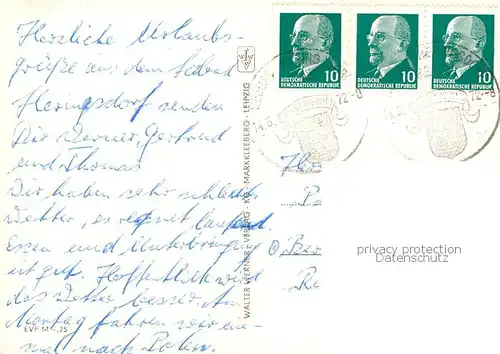 Herzliche Urlaubs-
grüße aus dem
Hermsdorf senden
Dir Werner, Gertrud
und Thomas.
Wir haben sehr schlechtes
Wetter, es regnet laufend.
Essen und Unterbringung
ist gut. Hoffentlich wird
das Wetter besser. Am
Montag fahren wir ein-
mal nach Polen.
EVP M -,25
WALTER WERNER - VERLAG - KG - MARKKLEEBERG - LEIPZIG
10
DEUTSCHE
DEMOKRATISCHE REPUBLIK
10
DEUTSCHE
DEMOKRATISCHE REPUBLIK
10
DEUTSCHE
DEMOKRATISCHE REPUBLIK
Pa
Ber
privacy protection
Datenschutz